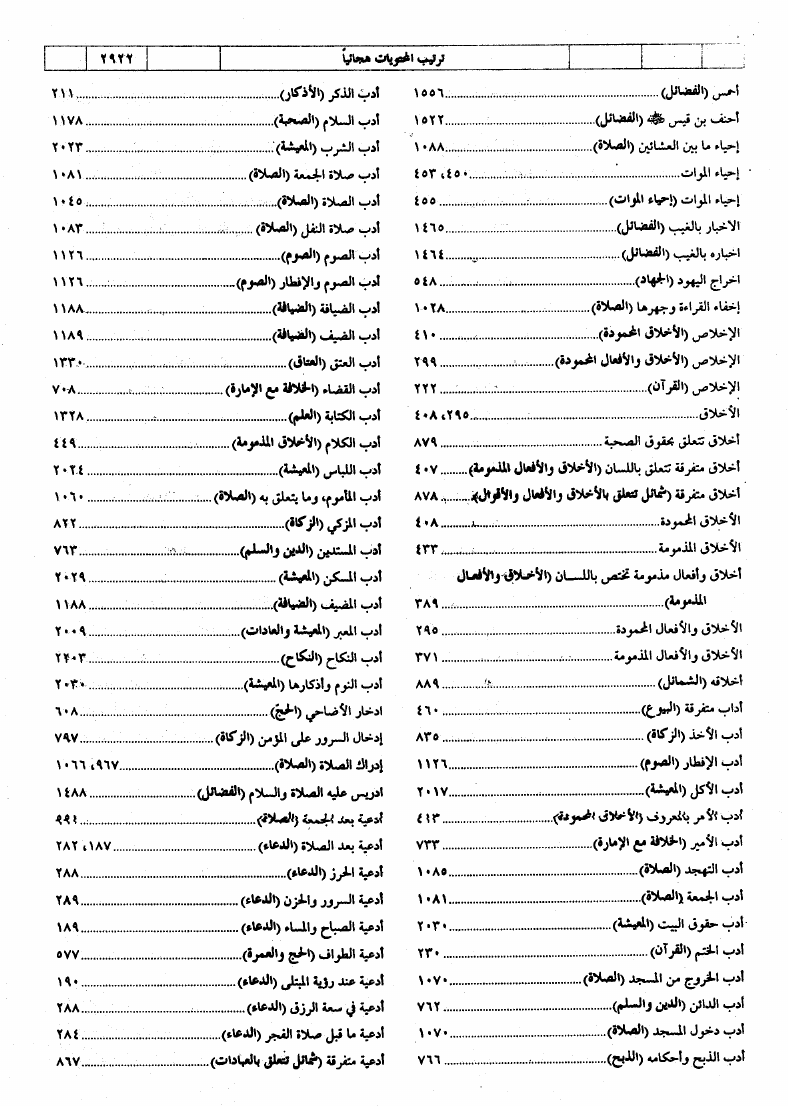 ترتيب المحتويات هجائياً
٢٩٢٢
أحمس (الفضائل) ١٥٥٦
أحنف بن قيس ﷺ (الفضائل) ١٥٢٢
إحياء ما بين العشائين (الصلاة) ١٠٨٨
إحياء الموات ٤٥٠، ٤٥٣
إحياء الموات (إحياء الموات) ٤٥٥
الاخبار بالغيب (الفضائل) ١٤٦٥
اخباره بالغيب (الفضائل) ١٤٦٤
اخراج اليهود (الجهاد) ٥٤٨
إخفاء القراءة وجهرها (الصلاة) ١٠٢٨
الإخلاص (الأخلاق المحمودة) ٤١٠
الإخلاص (الأخلاق والأفعال المحمودة) ٢٩٩
الإخلاص (القرآن) ٢٢٢
الأخلاق ٢٩٥، ٤٠٨
أخلاق تتعلق بحقوق الصحبة ٨٧٩
أخلاق متفرقة تتعلق باللسان (الأخلاق والأفعال المذمومة) ٤٠٧
أخلاق متفرقة (شمائل تتعلق بالأخلاق والأفعال والأقوال) ٨٧٨
الأخلاق المحمودة ٤٠٨
الأخلاق المذمومة ٤٣٣
أخلاق وأفعال مذمومة تختص باللسان (الأخلاق والأفعال
المذمومة) ٣٨٩
الأخلاق والأفعال المحمودة ٢٩٥
الأخلاق والأفعال المذمومة ٣٧١
أخلاقه (الشمائل) ٨٨٩
أداب متفرقة (البيوع) ٤٦٠
أدب الأخذ (الزكاة) ٨٣٥
أدب الإفطار (الصوم) ١١٢٦
أدب الأكل (المعيشة) ٢٠١٧
أدب الأمر بالمعروف (الأخلاق المحمودة) ٤١٣
أدب الأمير (الخلافة مع الإمارة) ٧٣٣
أدب التهجد (الصلاة) ١٠٨٥
أدب الجمعة (الصلاة) ١٠٨١
أدب حقوق البيت (المعيشة) ٢٠٣٠
أدب الختم (القرآن) ٢٣٠
أدب الخروج من المسجد (الصلاة) ١٠٧٠
أدب الدائن (الدين والسلم) ٧٦٢
أدب دخول المسجد (الصلاة) ١٠٧٠
أدب الذبح وأحكامه (الذبح) ٧٦٦
أدب الذكر (الأذكار) ٢١١
أدب السلام (الصحبة) ١١٧٨
أدب الشرب (المعيشة) ٢٠٢٣
أدب صلاة الجمعة (الصلاة) ١٠٨١
أدب الصلاة (الصلاة) ١٠٤٥
أدب صلاة النفل (الصلاة) ١٠٨٣
أدب الصوم (الصوم) ١١٢٦
أدب الصوم والإفطار (الصوم) ١١٢٦
أدب الضيافة (الضيافة) ١١٨٨
أدب الضيف (الضيافة) ١١٨٩
أدب العتق (العتاق) ١٣٣٠
أدب القضاء (الخلافة مع الإمارة) ٧٠٨
أدب الكتابة (العلم) ١٣٢٨
أدب الكلام (الأخلاق المذمومة) ٤٤٩
أدب اللباس (المعيشة) ٢٠٢٤
أدب المأموم، وما يتعلق به (الصلاة) ١٠٦٠
أدب المزكي (الزكاة) ٨٢٢
أدب المستدين (الدين والسلم) ٧٦٣
أدب المسكن (المعيشة) ٢٠٢٩
أدب المضيف (الضيافة) ١١٨٨
أدب المعبر (المعيشة والعادات) ٢٠٠٩
أدب النكاح (النكاح) ٢٤٠٣
أدب النوم وأذكارها (المعيشة) ٢٠٣٠
ادخار الأضاحي (الحج) ٦٠٨
إدخال السرور على المؤمن (الزكاة) ٧٩٧
إدراك الصلاة (الصلاة) ٩٦٧، ١٠٦٦
ادريس عليه الصلاة والسلام (الفضائل) ١٤٨٨
أدعية بعد الجمعة (الصلاة) ٩٩٤
أدعية بعد الصلاة (الدعاء) ١٨٧، ٢٨٢
أدعية الحرز (الدعاء) ٢٨٨
أدعية السرور والحزن (الدعاء) ٢٨٩
أدعية الصباح والمساء (الدعاء) ١٨٩
أدعية الطواف (الحج والعمرة) ٥٧٧
أدعية عند رؤية المبتلى (الدعاء) ١٩٠
أدعية في سعة الرزق (الدعاء) ٢٨٨
أدعية ما قبل صلاة الفجر (الدعاء) ٢٨٤
أدعية متفرقة (شمائل تتعلق بالعبادات) ٨٦٧